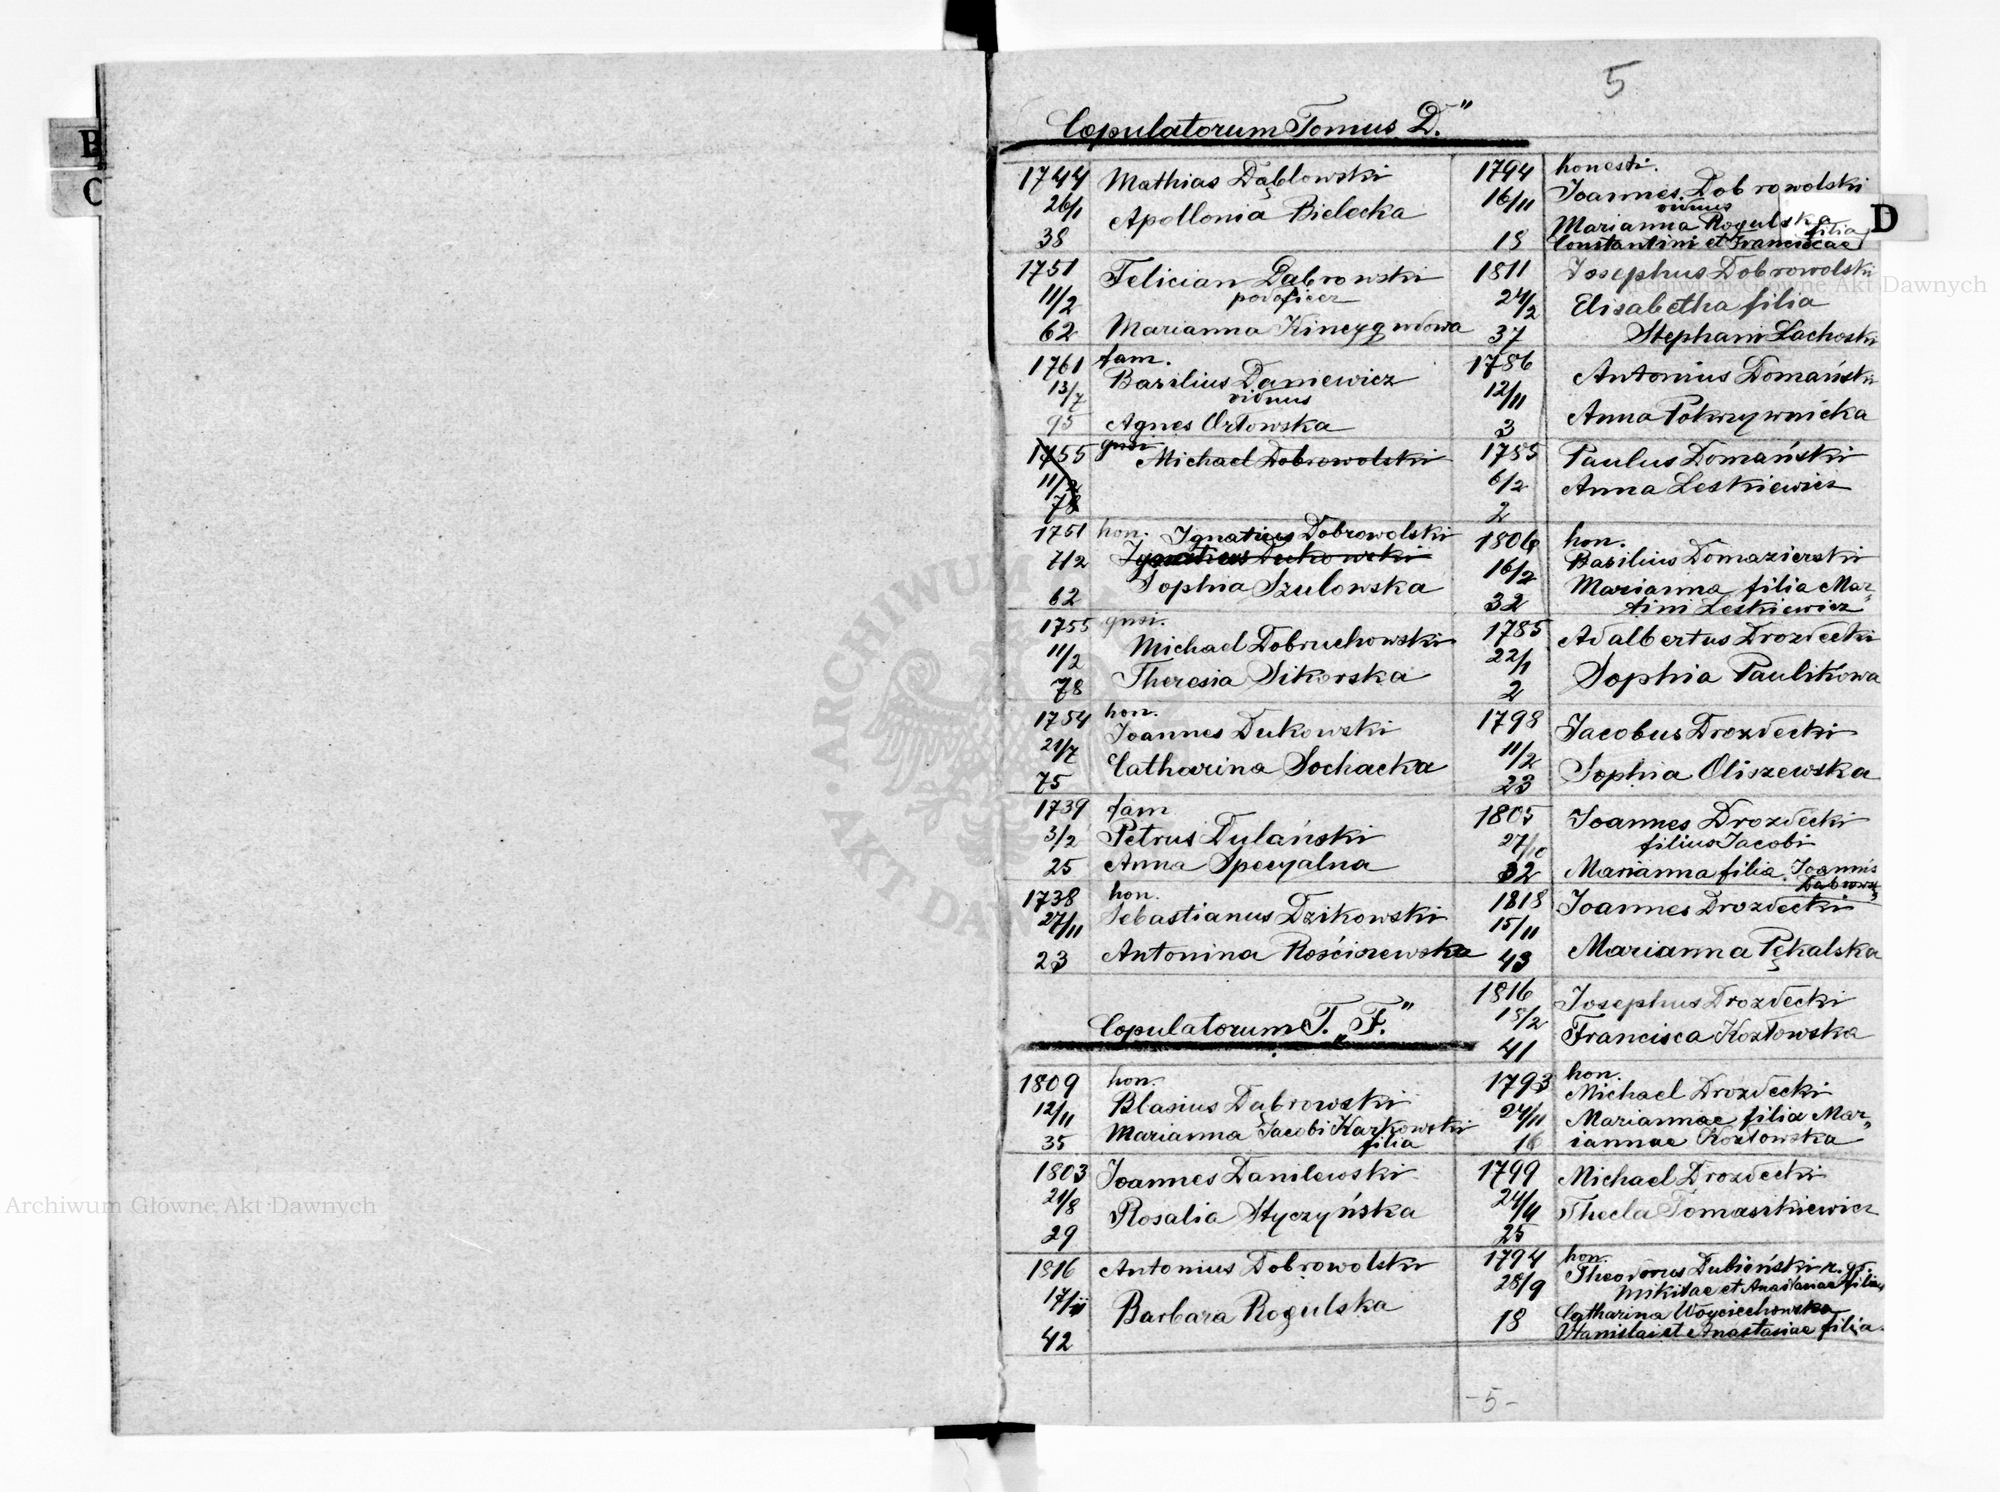 5
Copulatorum Tomus „D."
1744 Mathias Dąblowski
26/1 Apollonia Bielecka
38
1751 Felician Dąbrowski
11/2 podoficer
62 Marianna Kincyg wdowa
1761 fam.
Basilius Daniewicz
13/7 viduus
95 Agnes Orłowska
1755 gnsi. Michael Dobrowolski
11/2
78
1751 hon. Ignatius Dobrowolski
7/2 Ignatius Dukowski
62 Sophia Szulowska
1755 gnsi.
11/2 Michael Dobruchowski
78 Theresia Sikorska
1754 hon.
21/7 Joannes Dukowski
75 Catharina Sochacka
1739 fam
3/2 Petrus Dylański
25 Anna Specyalna
1738 hon.
27/11 Sebastianus Dzikowski
23 Antonina Kościszewska
Copulatorum T. „F."
1809 hon.
12/11 Blasius Dąbrowski
35 Marianna Jacobi Karkowski
filia
1803 Joannes Danilewski
21/8 Rosalia Styczyńska
29
1816 Antonius Dobrowolski
17/11 Barbara Rogulska
42
1794 honesti.
16/11 Joannes Dobrowolski
viduus
Marianna Rogulska filia
18 Constantini et Franciscae
1811 Josephus Dobrowolski
24/2 Elisabetha filia
37 Stephani Lachoski
1786 Antonius Domański
12/11
3 Anna Pokrzywnicka
1785 Paulus Domański
6/2 Anna Leskiewicz
2
1806 hon.
Basilius Domazierski
16/2 Marianna filia Mar„
32 tini Leskiewicz
1785 Adalbertus Drozdecki
22/1
2 Sophia Paulikowa
1798 Jacobus Drozdecki
11/2
23 Sophia Oliszewska
1805 Joannes Drozdecki
27/10 filius Jacobi
32 Marianna filia Joannis
Dąbrows„
1818 Joannes Drozdecki
15/11
43 Marianna Pękalska
1816 Josephus Drozdecki
18/2 Francisca Kozłowska
41
1793 hon.
Michael Drozdecki
24/11 Mariannae filia Mar„
16 iannae Kozłowska
1799 Michael Drozdecki
24/11 Thecla Tomaszkiewicz
25
1794 hon.
28/9 Theodorus Dubieński r. gr.
Mikitae et Anastasiae filius
18 Catharina Woyciechowska
Stanislai et Anastasiae filia.
-5-
B
C
D
ARCHIWUM
AKT DAWN
Archiwum Główne Akt Dawnych
Archiwum Główne Akt Dawnych